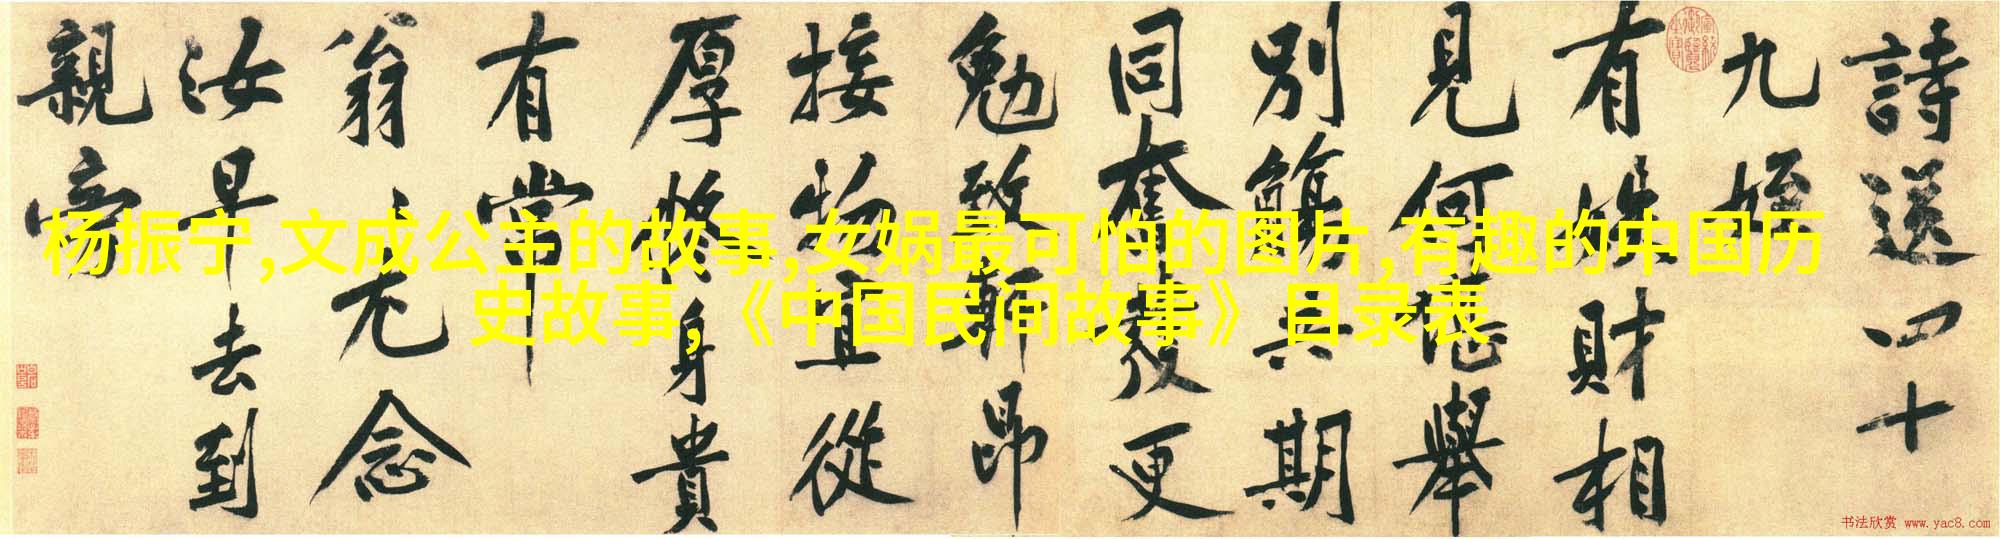 詩送四十
九姪
有姪財相
見何堪舉
別觴共期
同奮發更
勉致軒昂
接物宜從
厚將身貴
有常
翁〻尤念
汝早去到
親旁
杨振宁,文成公主的故事,女娲最可怕的图片,有趣的中国历
史故事,《中国民间故事》目录表
书法欣赏 www.yac8.com